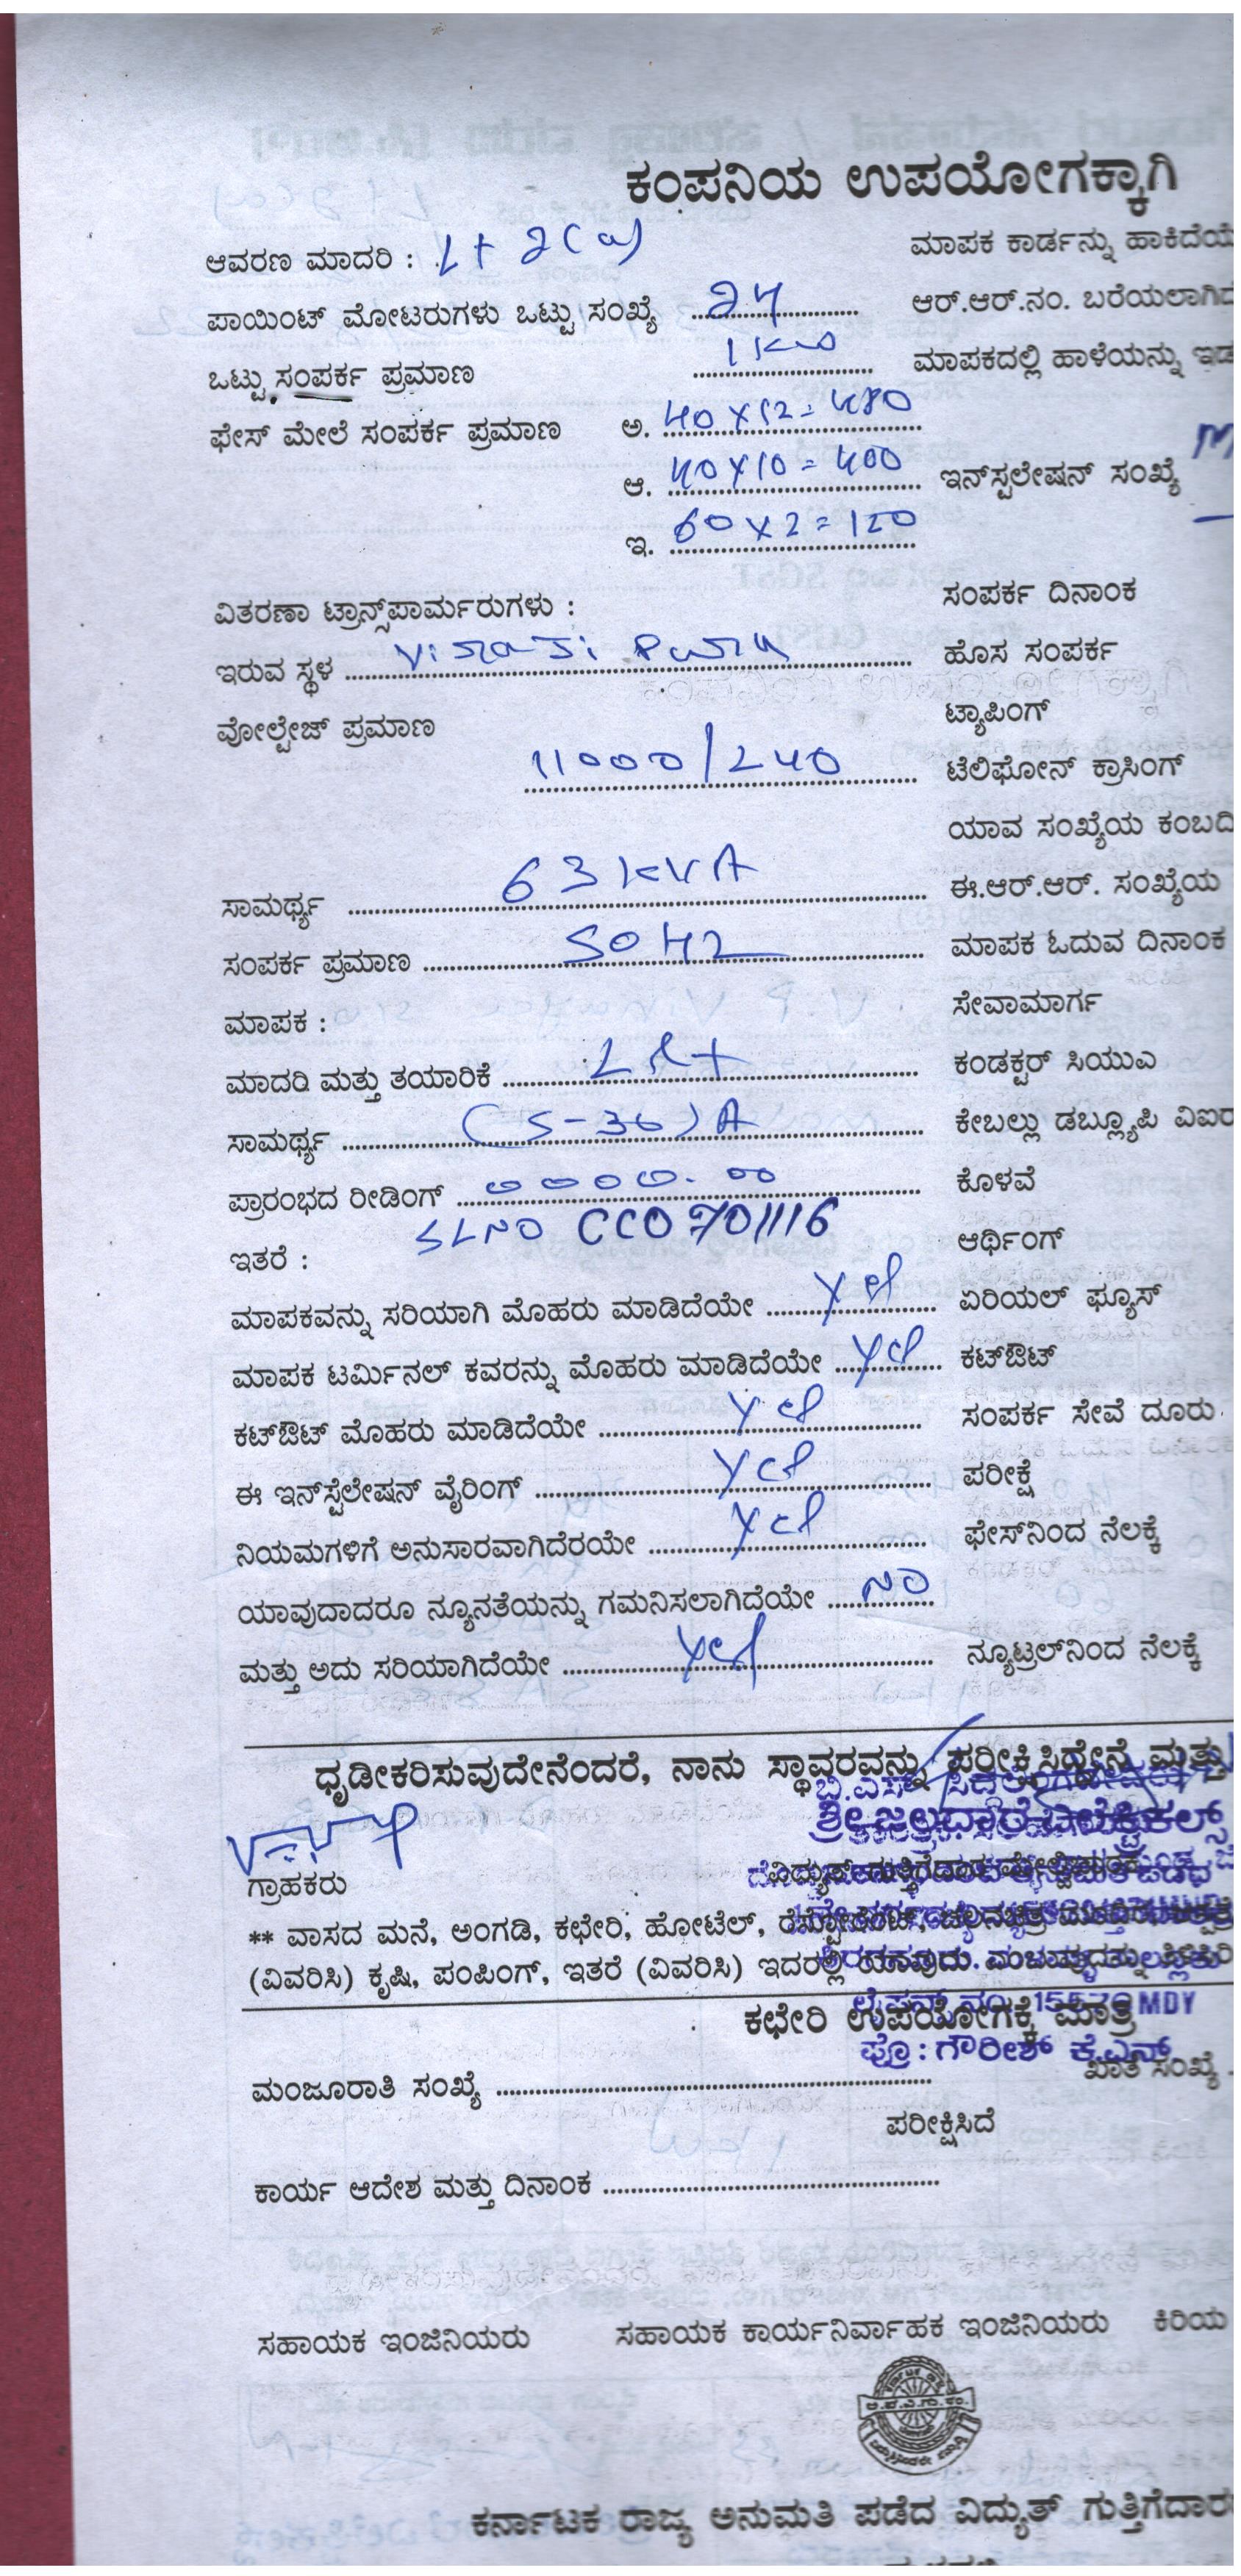 ಕಂಪನಿಯ ಉಪಯೋಗಕ್ಕಾಗಿ
ಆವರಣ ಮಾದರಿ : Lt 2(a) ಮಾಪಕ ಕಾರ್ಡನ್ನು ಹಾಕಿದೆಯೆ
ಪಾಯಿಂಟ್ ಮೋಟರುಗಳು ಒಟ್ಟು ಸಂಖ್ಯೆ 24 ಆರ್.ಆರ್.ನಂ. ಬರೆಯಲಾಗಿದ
ಒಟ್ಟು ಸಂಪರ್ಕ ಪ್ರಮಾಣ 1kw ಮಾಪಕದಲ್ಲಿ ಹಾಳೆಯನ್ನು ಇಡ
ಫೇಸ್ ಮೇಲೆ ಸಂಪರ್ಕ ಪ್ರಮಾಣ ಅ. 40 x 12 = 480
ಆ. 40 x 10 = 400 ಇನ್‌ಸ್ಟಲೇಷನ್ ಸಂಖ್ಯೆ
ಇ. 60 x 2 = 120
ವಿತರಣಾ ಟ್ರಾನ್ಸ್‌ಪಾರ್ಮರುಗಳು : ಸಂಪರ್ಕ ದಿನಾಂಕ
ಇರುವ ಸ್ಥಳ ಹೊಸ ಸಂಪರ್ಕ
ವೋಲ್ಟೇಜ್ ಪ್ರಮಾಣ ಟ್ಯಾಪಿಂಗ್
11000/240 ಟೆಲಿಫೋನ್ ಕ್ರಾಸಿಂಗ್
ಯಾವ ಸಂಖ್ಯೆಯ ಕಂಬದಿ
ಸಾಮರ್ಥ್ಯ 63 kVA ಈ.ಆರ್.ಆರ್. ಸಂಖ್ಯೆಯ
ಸಂಪರ್ಕ ಪ್ರಮಾಣ 50 Hz ಮಾಪಕ ಓದುವ ದಿನಾಂಕ
ಮಾಪಕ : ಸೇವಾಮಾರ್ಗ
ಮಾದರಿ ಮತ್ತು ತಯಾರಿಕೆ L&T ಕಂಡಕ್ಟರ್ ಸಿಯುಎ
ಸಾಮರ್ಥ್ಯ (5-30)A ಕೇಬಲ್ಲು ಡಬ್ಲ್ಯೂಪಿ ವಿಐರ
ಪ್ರಾರಂಭದ ರೀಡಿಂಗ್ 0000.00 ಕೊಳವೆ
SLNO CCO 701116
ಇತರೆ : ಆರ್ಥಿಂಗ್
ಮಾಪಕವನ್ನು ಸರಿಯಾಗಿ ಮೊಹರು ಮಾಡಿದೆಯೇ yes ಏರಿಯಲ್ ಫ್ಯೂಸ್
ಮಾಪಕ ಟರ್ಮಿನಲ್ ಕವರನ್ನು ಮೊಹರು ಮಾಡಿದೆಯೇ yes ಕಟ್‌ಔಟ್
ಕಟ್‌ಔಟ್ ಮೊಹರು ಮಾಡಿದೆಯೇ yes ಸಂಪರ್ಕ ಸೇವೆ ದೂರು
ಈ ಇನ್‌ಸ್ಟೆಲೇಷನ್ ವೈರಿಂಗ್ yes ಪರೀಕ್ಷೆ
ನಿಯಮಗಳಿಗೆ ಅನುಸಾರವಾಗಿದೆರಯೇ yes ಫೇಸ್‌ನಿಂದ ನೆಲಕ್ಕೆ
ಯಾವುದಾದರೂ ನ್ಯೂನತೆಯನ್ನು ಗಮನಿಸಲಾಗಿದೆಯೇ NO
ಮತ್ತು ಅದು ಸರಿಯಾಗಿದೆಯೇ yes ನ್ಯೂಟ್ರಲ್‌ನಿಂದ ನೆಲಕ್ಕೆ
ಧೃಡೀಕರಿಸುವುದೇನೆಂದರೆ, ನಾನು ಸ್ಥಾವರವನ್ನು ಪರೀಕ್ಷಿಸಿದ್ದೇನೆ ಮತ್ತು
ಬಿ.ಎಸ್
ಶ್ರೀ ಜಲಧಾರೆ ಎಲೆಕ್ಟ್ರಿಕಲ್ಸ್
ಗ್ರಾಹಕರು
** ವಾಸದ ಮನೆ, ಅಂಗಡಿ, ಕಛೇರಿ, ಹೋಟೆಲ್,
(ವಿವರಿಸಿ) ಕೃಷಿ, ಪಂಪಿಂಗ್, ಇತರೆ (ವಿವರಿಸಿ) ಇದರಲ್ಲಿ ಯಾವುದು
ಲೈಸನ್ಸ್ ನಂ. MDY
ಕಛೇರಿ ಉಪಯೋಗಕ್ಕೆ ಮಾತ್ರ
ಪ್ರೊ : ಗೌರೀಶ್ ಕೆ.ಎನ್
ಮಂಜೂರಾತಿ ಸಂಖ್ಯೆ ಖಾತೆ ಸಂಖ್ಯೆ
ಪರೀಕ್ಷಿಸಿದೆ
ಕಾರ್ಯ ಆದೇಶ ಮತ್ತು ದಿನಾಂಕ
ಸಹಾಯಕ ಇಂಜಿನಿಯರು ಸಹಾಯಕ ಕಾರ್ಯನಿರ್ವಾಹಕ ಇಂಜಿನಿಯರು ಕಿರಿಯ
ಕರ್ನಾಟಕ ರಾಜ್ಯ ಅನುಮತಿ ಪಡೆದ ವಿದ್ಯುತ್ ಗುತ್ತಿಗೆದಾರ